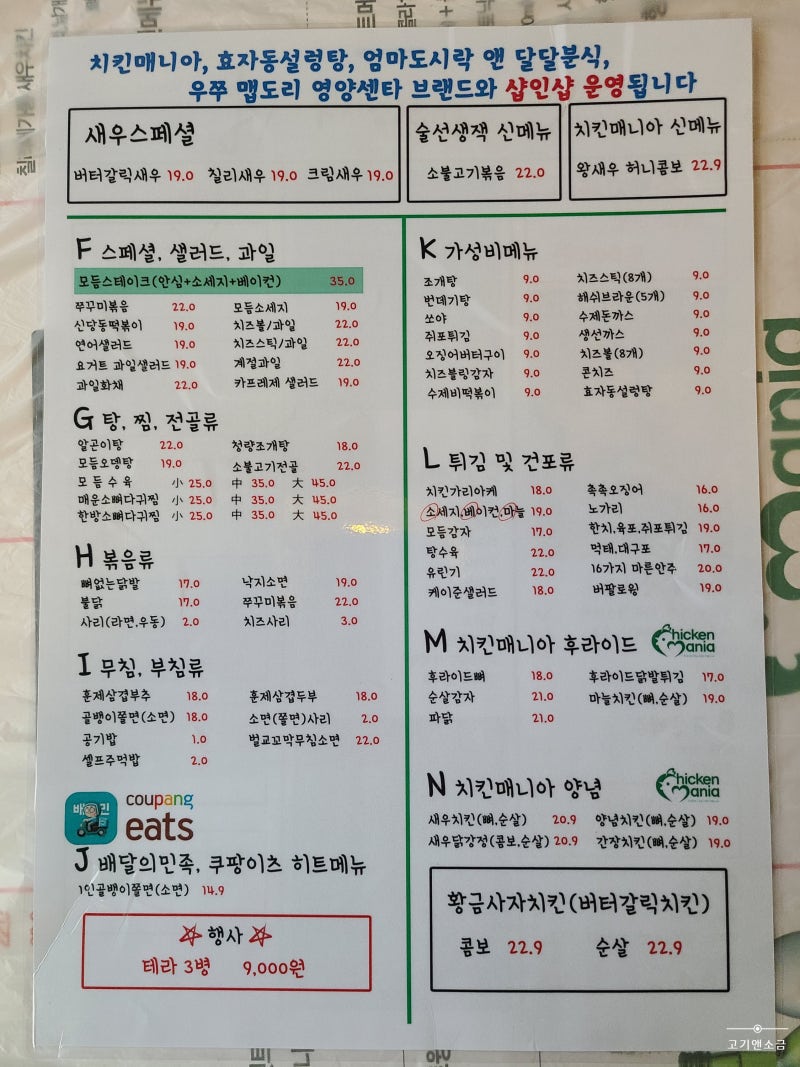 치킨매니아, 효자동설렁탕, 엄마도시락 앤 달달분식,
우쭈 맵도리 영양센타 브랜드와 샵인샵 운영됩니다
새우스페셜
버터갈릭새우 19.0 칠리새우 19.0 크림새우 19.0
술선생잭 신메뉴
소불고기볶음 22.0
치킨매니아 신메뉴
왕새우 허니콤보 22.9
F 스페셜, 샐러드, 과일
모듬스테이크(안심+소세지+베이컨) 35.0
쭈꾸미볶음 22.0 모듬소세지 19.0
신당동떡볶이 19.0 치즈볼/과일 22.0
연어샐러드 19.0 치즈스틱/과일 22.0
요거트 과일샐러드 19.0 계절과일 22.0
과일화채 22.0 카프레제 샐러드 19.0
G 탕, 찜, 전골류
알곤이탕 22.0 청량조개탕 18.0
모듬오뎅탕 19.0 소불고기전골 22.0
모듬수육 小 25.0 中 35.0 大 45.0
매운소뼈다귀찜 小 25.0 中 35.0 大 45.0
한방소뼈다귀찜 小 25.0 中 35.0 大 45.0
H 볶음류
뼈없는닭발 17.0 낙지소면 19.0
불닭 17.0 쭈꾸미볶음 22.0
사리(라면,우동) 2.0 치즈사리 3.0
I 무침, 부침류
훈제삼겹부추 18.0 훈제삼겹두부 18.0
골뱅이쫄면(소면) 18.0 소면(쫄면)사리 2.0
공기밥 1.0 벌교꼬막무침소면 22.0
셀프주먹밥 2.0
배민
coupang
eats
J 배달의민족, 쿠팡이츠 히트메뉴
1인골뱅이쫄면(소면) 14.9
행사
테라 3병 9,000원
K 가성비메뉴
조개탕 9.0 치즈스틱(8개) 9.0
번데기탕 9.0 해쉬브라운(5개) 9.0
쏘야 9.0 수제돈까스 9.0
쥐포튀김 9.0 생선까스 9.0
오징어버터구이 9.0 치즈볼(8개) 9.0
치즈볼링감자 9.0 콘치즈 9.0
수제비떡볶이 9.0 효자동설렁탕 9.0
L 튀김 및 건포류
치킨가라아케 18.0 촉촉오징어 16.0
소세지,베이컨,마늘 19.0 노가리 16.0
모듬감자 17.0 한치,육포,쥐포튀김 19.0
탕수육 22.0 먹태,대구포 17.0
유린기 22.0 16가지 마른안주 20.0
케이준샐러드 18.0 버팔로윙 19.0
M 치킨매니아 후라이드
Chicken
Mania
후라이드뼈 18.0 후라이드닭발튀김 17.0
순살감자 21.0 마늘치킨(뼈,순살) 19.0
파닭 21.0
N 치킨매니아 양념
Chicken
Mania
새우치킨(뼈,순살) 20.9 양념치킨(뼈,순살) 19.0
새우닭강정(콤보,순살) 20.9 간장치킨(뼈,순살) 19.0
황금사자치킨(버터갈릭치킨)
콤보 22.9 순살 22.9
고기앤소금